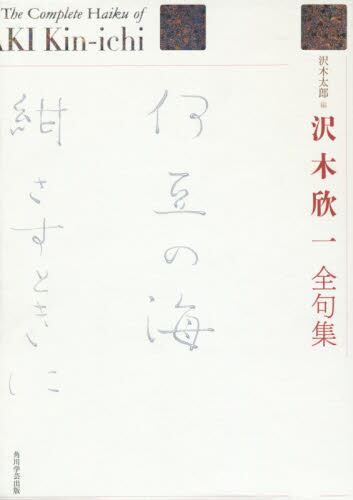 The Complete Haiku of
AKI Kin-ichi
沢木太郎 編
沢木欣一 全句集
伊豆の海
紺さすときに
角川学芸出版